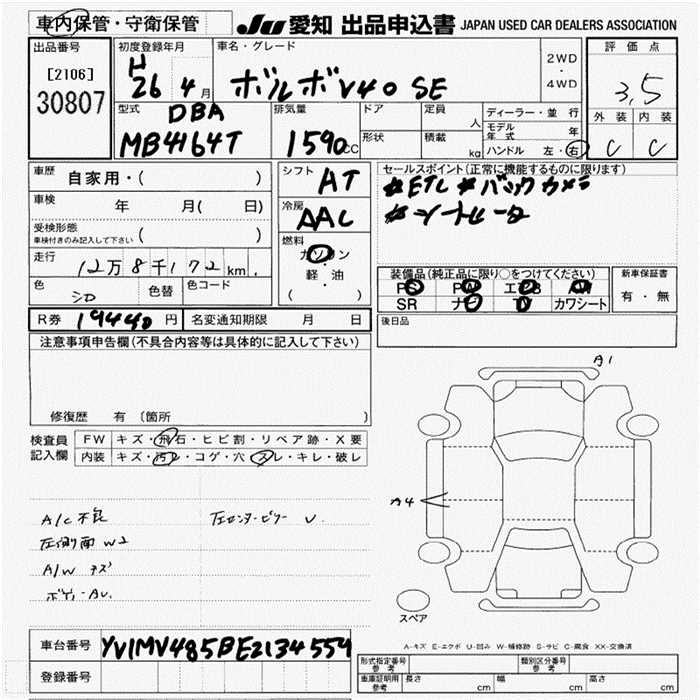 車内保管・守衛保管
JU 愛知 出品申込書 JAPAN USED CAR DEALERS ASSOCIATION
出品番号 初度登録年月 車名・グレード 評価点
[2106] 30807
H 26 4月 ボルボV40 SE
2WD・4WD
3.5
外装 内装
C C
型式 DBA MB4164T
排気量 1590cc
ドア 定員 人
形状 積載 kg
ディーラー・並行
モデル年式 年
ハンドル 左・右
車歴 自家用・( )
車検 年 月( 日)
受検形態
車検付きのみ記入して下さい ( )
走行 12万8千172km.
色 シロ 色替 色コード
シフト AT
冷房 AAC
燃料 ガソリン・軽・油
( )
セールスポイント(正常に機能するものに限ります)
#ETC #バックカメラ
#シートヒータ
装備品(純正品に限り○をつけてください)
PS PW エアB AW
SR ナビ TV カワシート
新車保証書
有・無
後日品
R券 19440円 名変通知期限 月 日
注意事項申告欄(不具合内容等は具体的に記入して下さい)
修復歴 有 (箇所 )
検査員記入欄
FW キズ・飛石・ヒビ割・リペア跡・X要
内装 キズ・汚レ・コゲ・穴・スレ・キレ・破レ
A/C不良 左センターピラー U
左側面 W2
A/W キズ
ボディーAU.
A1
A4
スペア
A-キズ E-エクボ U-凹み W-補修跡 S-サビ C-腐食 XX-交換済
車台番号 YV1MV485BE2134554
登録番号
形式指定番号参考 類別区分番号参考
車庫証明用参考 長さ cm 幅 cm 高さ cm